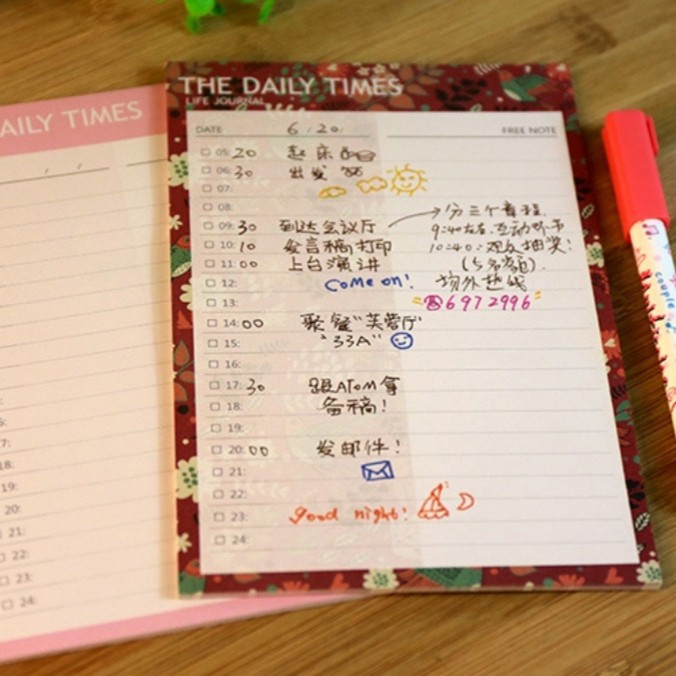 AILY TIMES
THE DAILY TIMES
LIFE JOURNAL
DATE 6/20/ FREE NOTE
05: 20 起床
06: 30 出发
07:
08:
09: 30 到达会议厅 → 分三个章程.
9:40左右:互动环节
10: 10 发言稿打印 10:40:观众抽奖!
11: 00 上台演讲 (5名额).
12: Come on! 场外热线
13: "☎6972996"
14: 00 聚餐"芙蓉厅"
15: "33A"
16:
17: 30 跟ATOM拿
18: 备稿!
19:
20: 00 发邮件!
21:
22:
23: good night!
24:
18:
19:
20:
21:
22:
23:
24:
couple